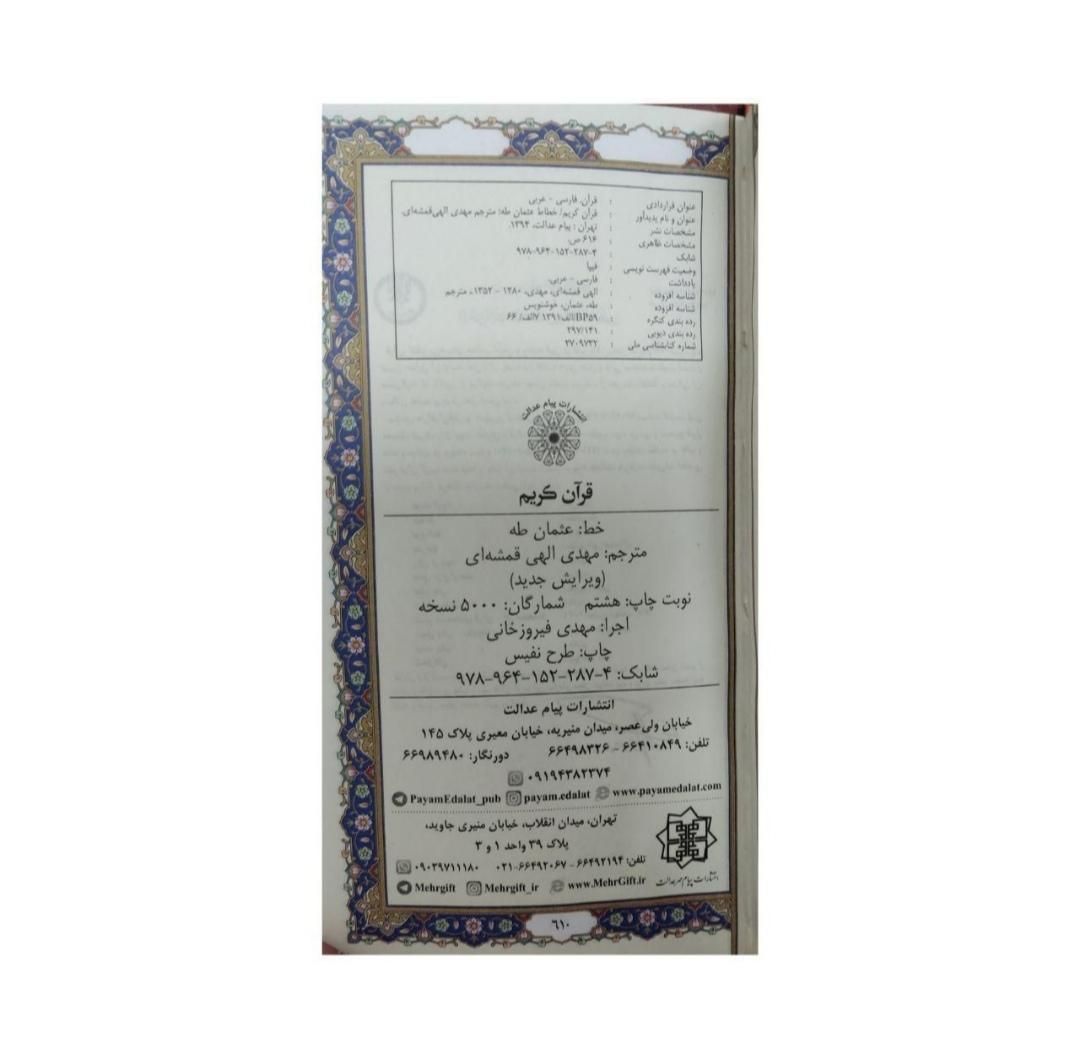 عنوان قراردادی : قرآن. فارسی - عربی
عنوان و نام پدیدآور : قرآن کریم/ خطاط عثمان طه؛ مترجم مهدی الهی‌قمشه‌ای.
مشخصات نشر : تهران : پیام عدالت، ۱۳۹۴.
مشخصات ظاهری : ۶۱۶ ص.
شابک : ۹۷۸-۹۶۴-۱۵۲-۲۸۷-۴
وضعیت فهرست نویسی : فیپا
یادداشت : فارسی - عربی.
شناسه افزوده : الهی قمشه‌ای، مهدی، ۱۲۸۰ - ۱۳۵۲، مترجم
شناسه افزوده : طه، عثمان، خوشنویس
رده بندی کنگره : BP۵۹/الف۷ ۱۳۹۱الف/ ۶۶
رده بندی دیویی : ۲۹۷/۱۴۱
شماره کتابشناسی ملی : ۲۷۰۹۷۳۲
انتشارات پیام عدالت
قرآن کریم
خط: عثمان طه
مترجم: مهدی الهی قمشه‌ای
(ویرایش جدید)
نوبت چاپ: هشتم شمارگان: ۵۰۰۰ نسخه
اجرا: مهدی فیروزخانی
چاپ: طرح نفیس
شابک: ۴-۲۸۷-۱۵۲-۹۶۴-۹۷۸
انتشارات پیام عدالت
خیابان ولی‌عصر، میدان منیریه، خیابان معیری پلاک ۱۴۵
تلفن: ۶۶۴۱۰۸۴۹ - ۶۶۴۹۸۳۲۶ دورنگار: ۶۶۹۸۹۴۸۰
۰۹۱۹۴۳۸۲۳۷۴
PayamEdalat_pub payam.edalat www.payamedalat.com
تهران، میدان انقلاب، خیابان منیری جاوید،
پلاک ۳۹ واحد ۱ و ۳
تلفن: ۶۶۴۹۲۱۹۴ - ۰۲۱-۶۶۴۹۲۰۶۷ ۰۹۰۳۹۷۱۱۱۸۰
Mehrgift Mehrgift_ir www.MehrGift.ir
انتشارات پیام مهر عدالت
٦١٠